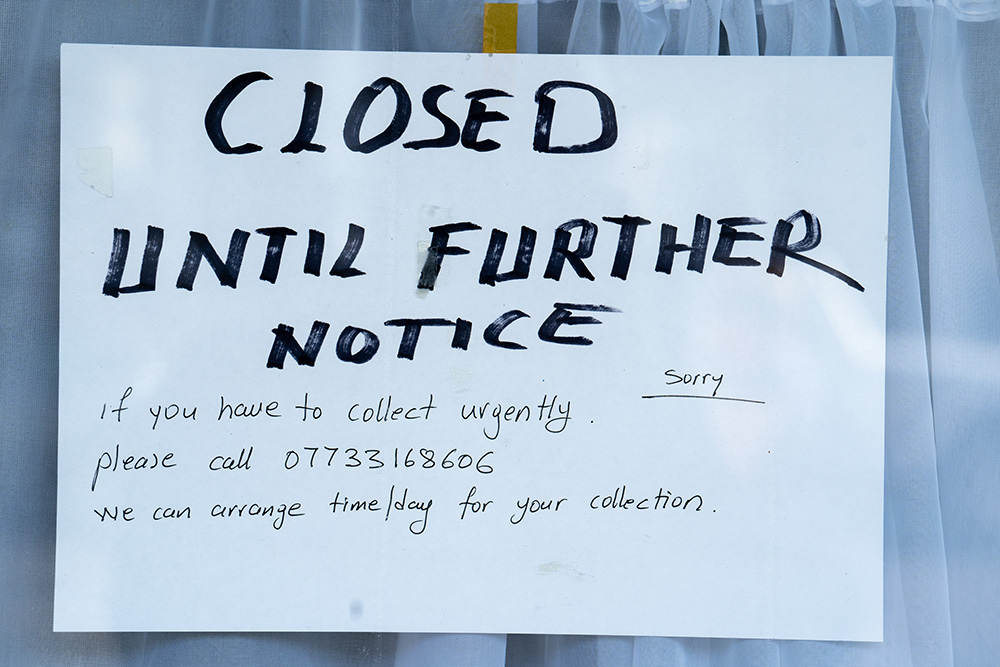 CLOSED
UNTIL FURTHER
NOTICE
Sorry
if you have to collect urgently.
please call 07733168606
we can arrange time/day for your collection.